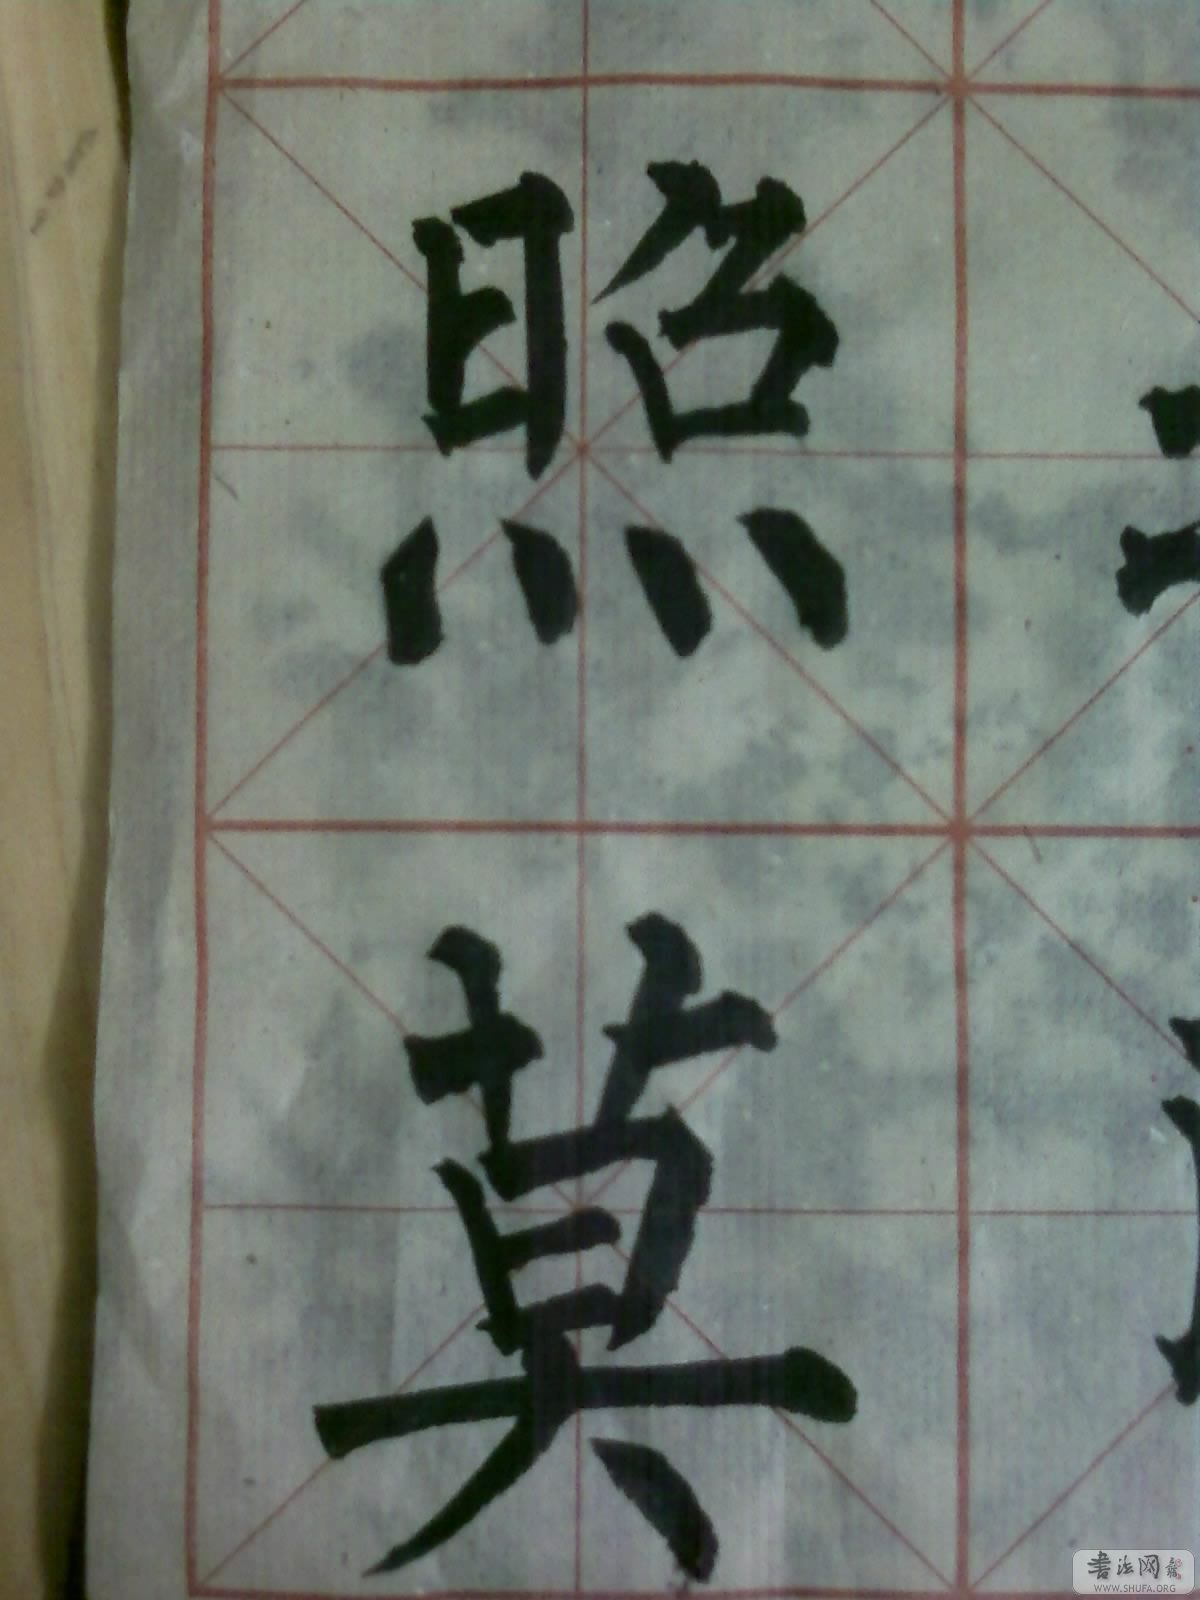 照
莫
书法网
WWW.SHUFA.ORG